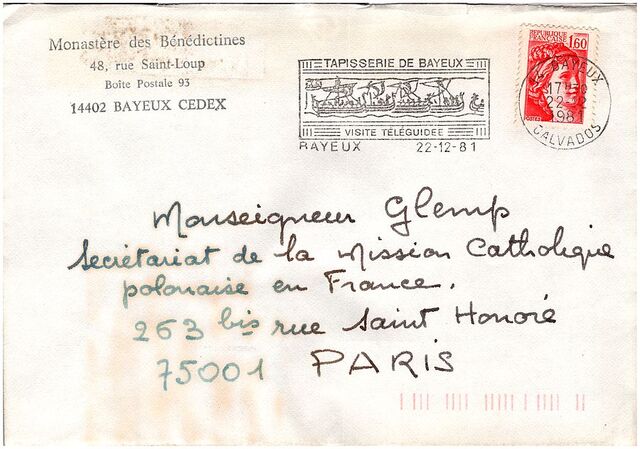 Monastère des Bénédictines
48, rue Saint-Loup
Boîte Postale 93
14402 BAYEUX CEDEX
TAPISSERIE DE BAYEUX
VISITE TÉLÉGUIDÉE
BAYEUX 22-12-81
REPUBLIQUE
FRANÇAISE
1,60
BAYEUX
22-12
CALVADOS
Monseigneur Glemp
Secrétariat de la Mission Catholique
polonaise en France.
263 bis rue Saint Honoré
75001 PARIS